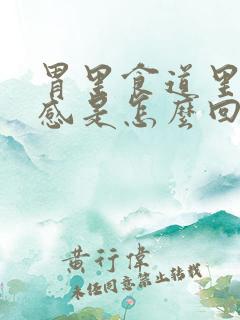 胃里食道里
感是怎麽回
黄行偉
未经同意禁止转载